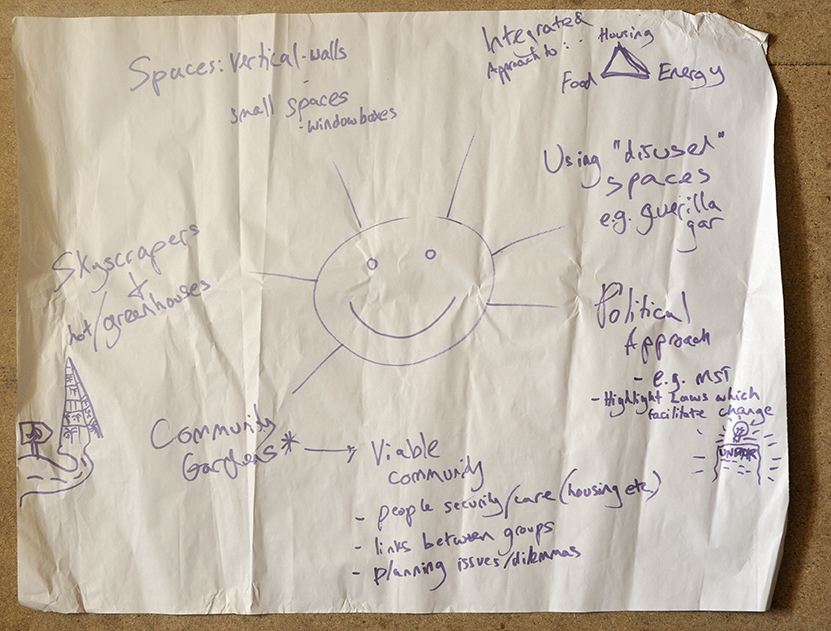 Spaces: Vertical-walls
-
small spaces
- window boxes
Integrated
Approach to: - Housing
Food Energy
Using "disused"
spaces
e.g. guerilla
gar
Skyscrapers
+
hot/greenhouses
Political
Approach
- e.g. MST
- Highlight Laws which
facilitate change
Community
Gardens* → Viable
community
- people security/care (housing etc)
- links between groups
- planning issues/dilemmas